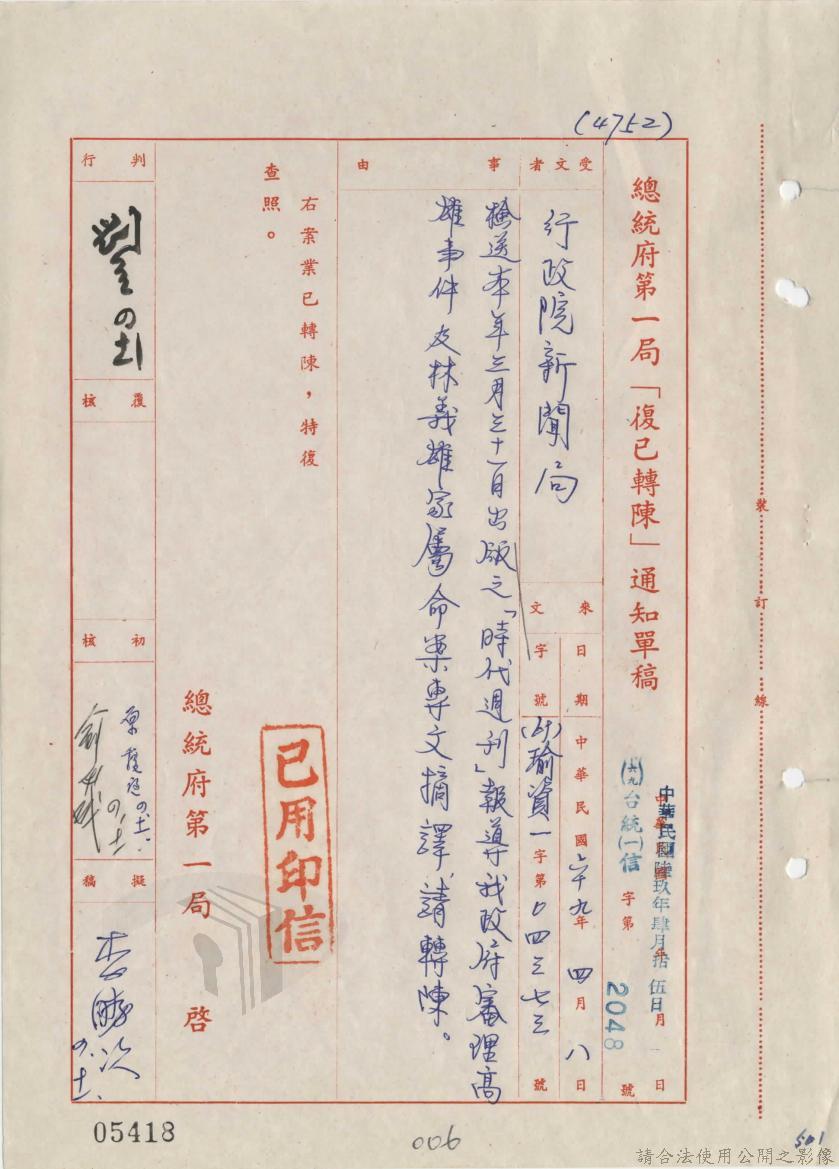 (4752)
總統府第一局「復已轉陳」通知單稿
中華民國陸玖年肆月拾伍日
(六九)台統(一)信 字第 2048 號
受文者
行政院新聞局
來文
日期 中華民國六十九年四月八日
字號 (69)瑜資一字第0四三七三號
事由
檢送本年三月三十一日出版之「時代週刊」報導我政府審理高
雄事件及林義雄家屬命案專文摘譯，請轉陳。
右案業已轉陳，特復
查照。
已用印信
總統府第一局 啓
判行
覆核
初核
擬稿
裝訂線
05418
006
501
請合法使用公開之影像